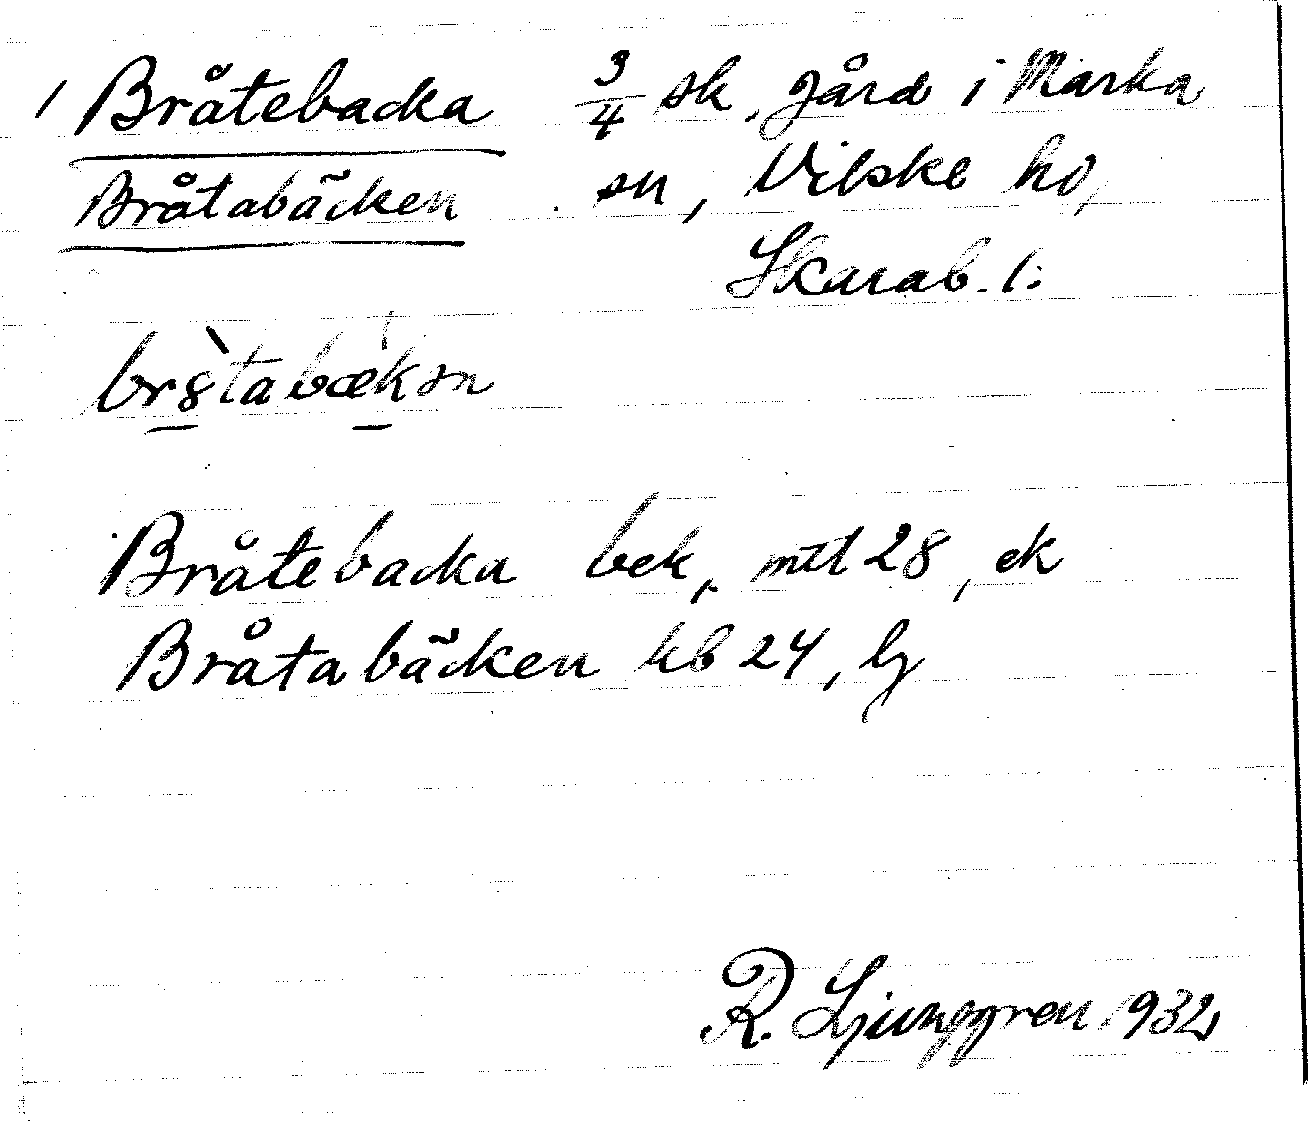 / Bråtebacka 3/4 sk, gård i Marka
Bråtabäcken sn, Vilske hd,
Skarab. l.
Bråtebacka bek, mtl 28, ek
Bråtabäcken kb 24, lj
R. Ljunggren 1932